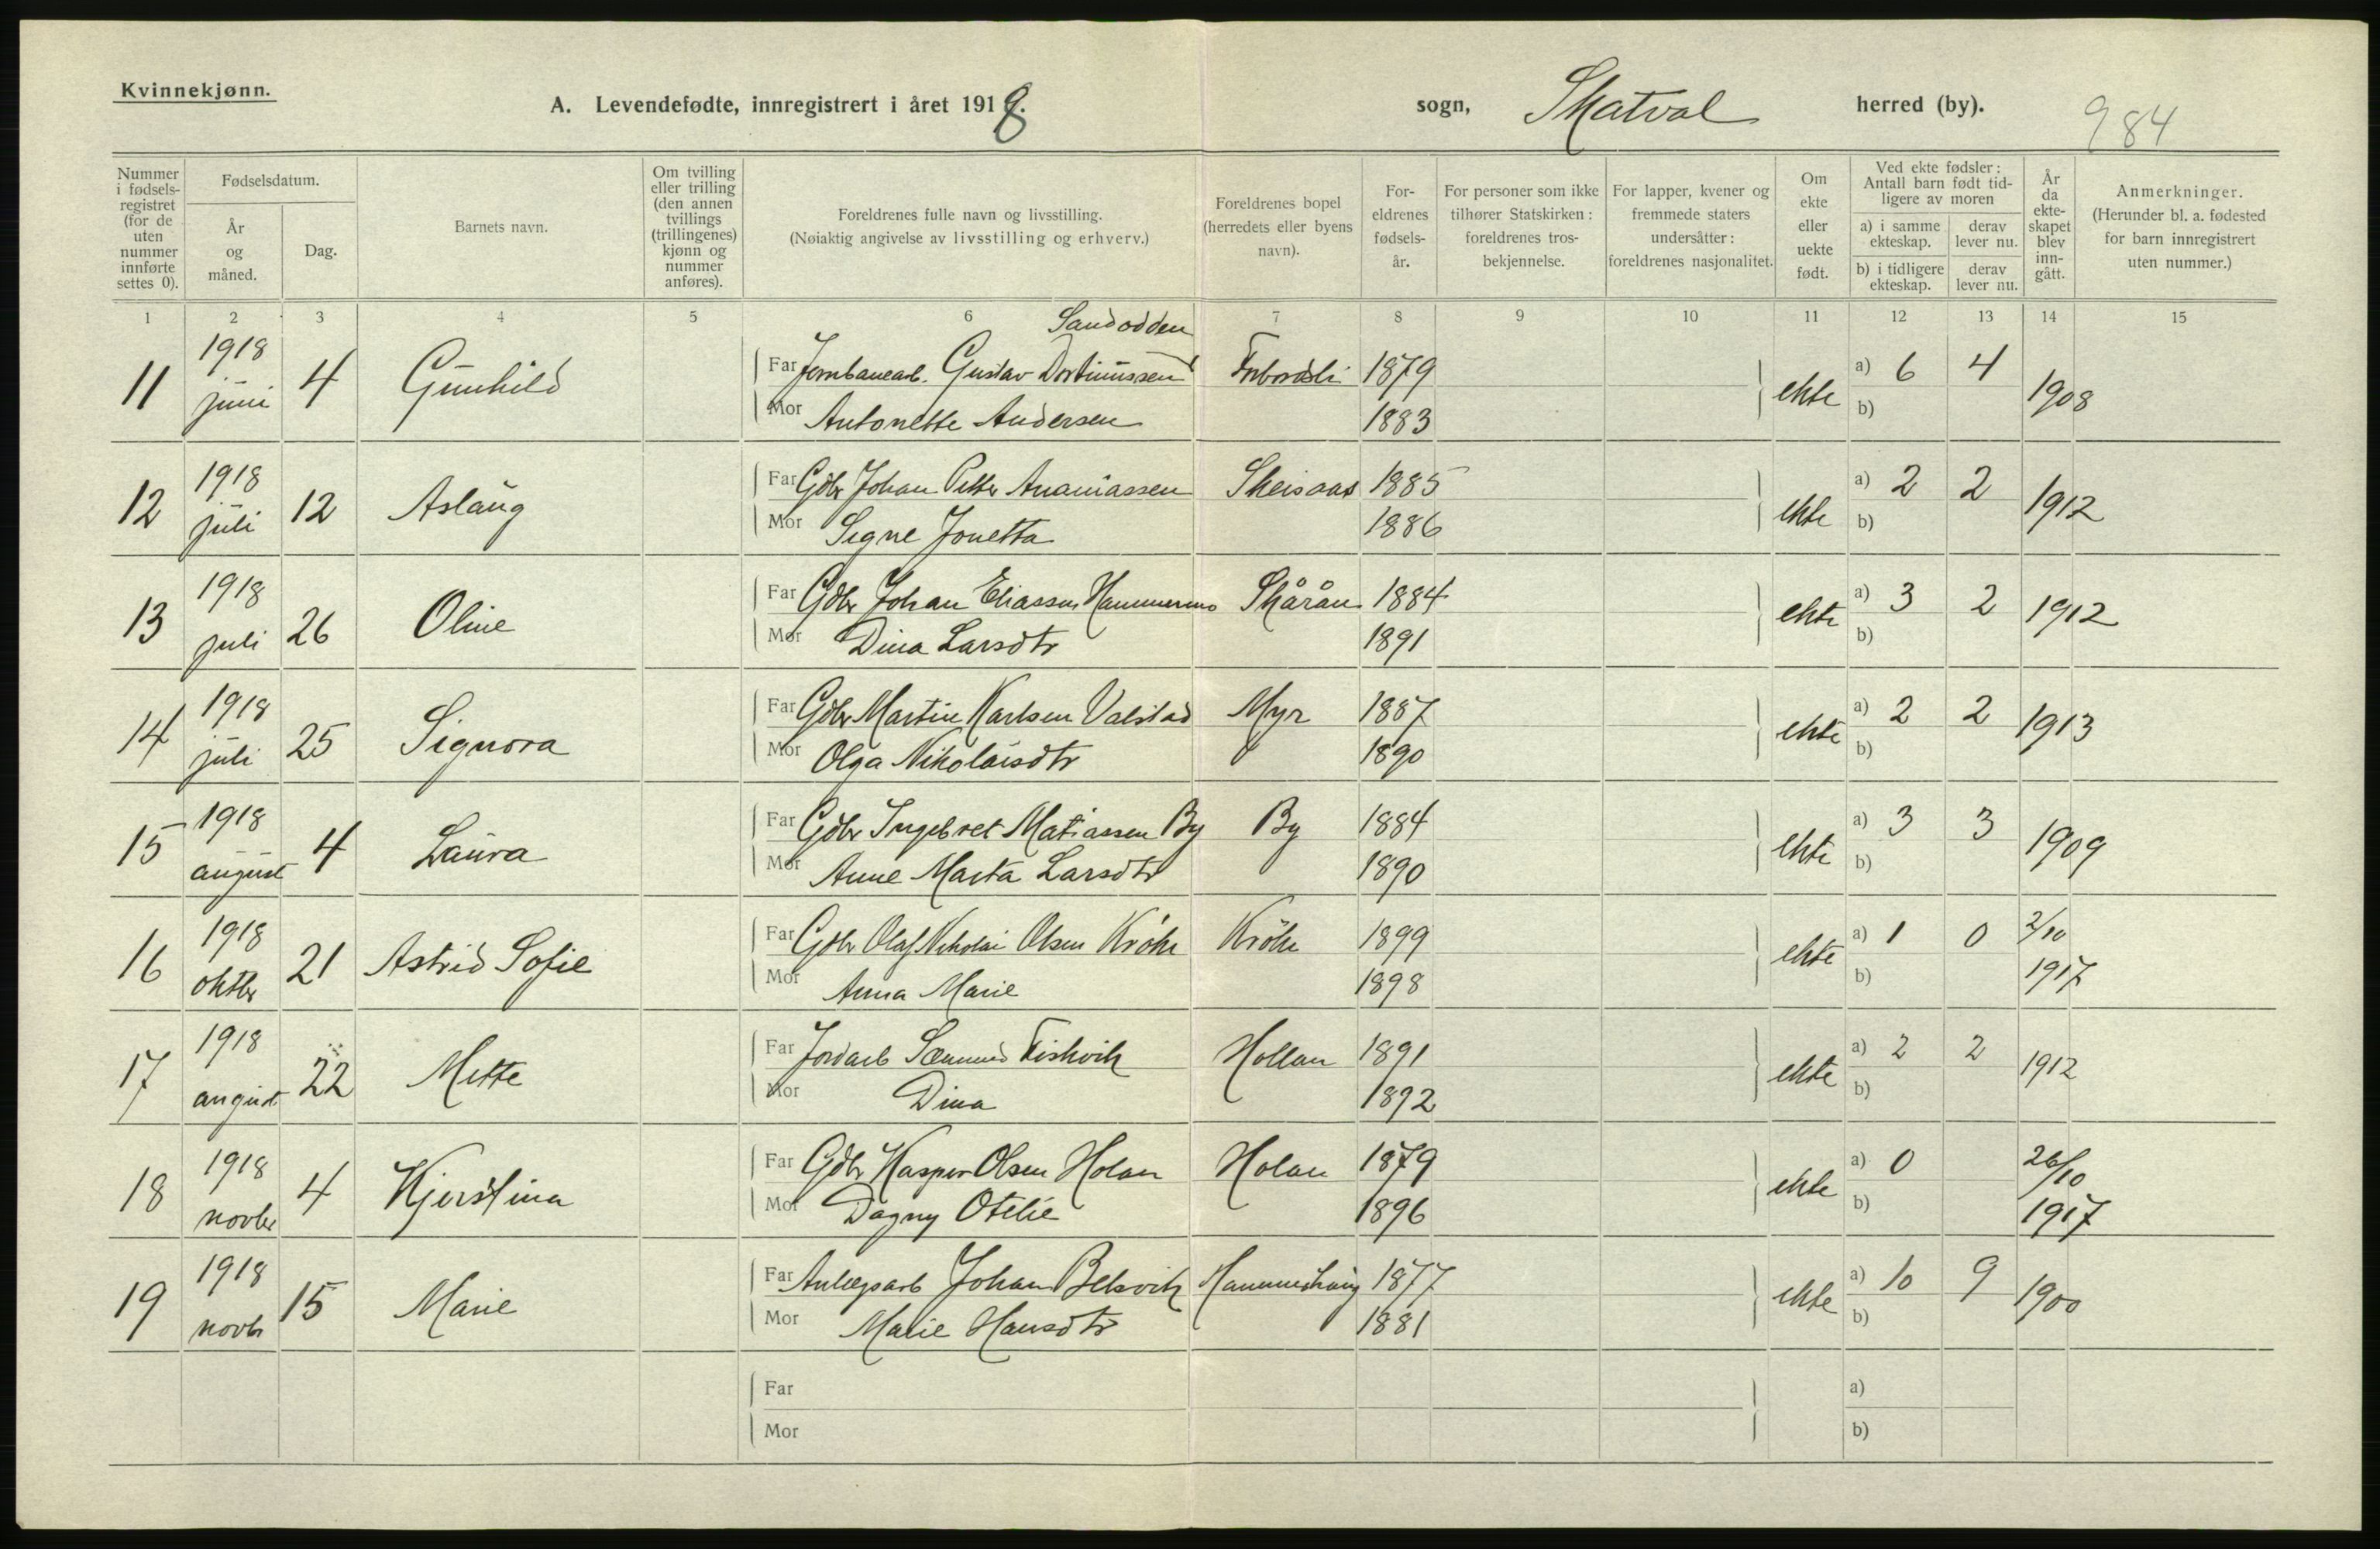 Kvinnekjønn.
A. Levendefødte, innregistrert i året 1918.
sogn, Skatval herred (by).
984
Nummer i fødselsregistret (for de uten nummer innførte settes 0).
Fødselsdatum.
År og måned.
Dag.
Barnets navn.
Om tvilling eller trilling (den annen tvillings (trillingenes) kjønn og nummer anføres).
Foreldrenes fulle navn og livsstilling.
(Nøiaktig angivelse av livsstilling og erhverv.)
Foreldrenes bopel (herredets eller byens navn).
Foreldrenes fødselsår.
For personer som ikke tilhører Statskirken: foreldrenes trosbekjennelse.
For lapper, kvener og fremmede staters undersåtter: foreldrenes nasjonalitet.
Om ekte eller uekte født.
Ved ekte fødsler: Antall barn født tidligere av moren
a) i samme ekteskap. derav lever nu.
b) i tidligere ekteskap. derav lever nu.
År da ekteskapet blev inngått.
Anmerkninger.
(Herunder bl. a. fødested for barn innregistrert uten nummer.)
1 2 3 4 5 6 7 8 9 10 11 12 13 14 15
Sandodden
11 1918 juni 4 Gunhild Far Jernbanearb. Gustav Dortinussen 1879 ekte a) 6 4 1908
Mor Antonette Andersen 1883 b)
12 1918 juli 12 Aslaug Far Gdbr Johan Petter Ananiassen 1885 ekte a) 2 2 1912
Mor Signe Jonetta 1886 b)
13 1918 juli 26 Oline Far Gdbr Johan Eliassen Hammermo Skårån 1884 ekte a) 3 2 1912
Mor Dina Larsdtr 1891 b)
14 1918 juli 25 Signora Far Gdbr Martin Karlsen Valstad Myr 1887 ekte a) 2 2 1913
Mor Olga Nikolaisdtr 1890 b)
15 1918 august 4 Laura Far Gdbr Ingebret Matiassen By By 1884 ekte a) 3 3 1909
Mor Anne Marta Larsdtr 1890 b)
16 1918 oktbr 21 Astrid Sofie Far Gdbr Olaf Nikolai Olsen Kröke Kröke 1899 ekte a) 1 0 2/10 1917
Mor Anna Marie 1898 b)
17 1918 august 22 Mette Far Jordarb Sæmund Fiskvik Hollan 1891 ekte a) 2 2 1912
Mor Dina 1892 b)
18 1918 novbr 4 Kjerstina Far Gdbr Kasper Olsen Holan Holan 1879 ekte a) 0 26/10 1917
Mor Dagny Otelie 1896 b)
19 1918 novbr 15 Marie Far Anlegsarb Johan Belsvik 1877 ekte a) 10 9 1900
Mor Marie Hansdtr 1881 b)
Far a)
Mor b)